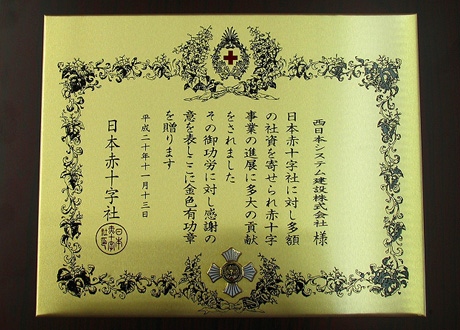 西日本システム建設株式会社 様
日本赤十字社に対し多額
の社資を寄せられ赤十字
事業の進展に多大の貢献
をされました
その御功労に対し感謝の
意を表しここに金色有功章
を贈ります
平成二十年十一月十三日
日本赤十字社